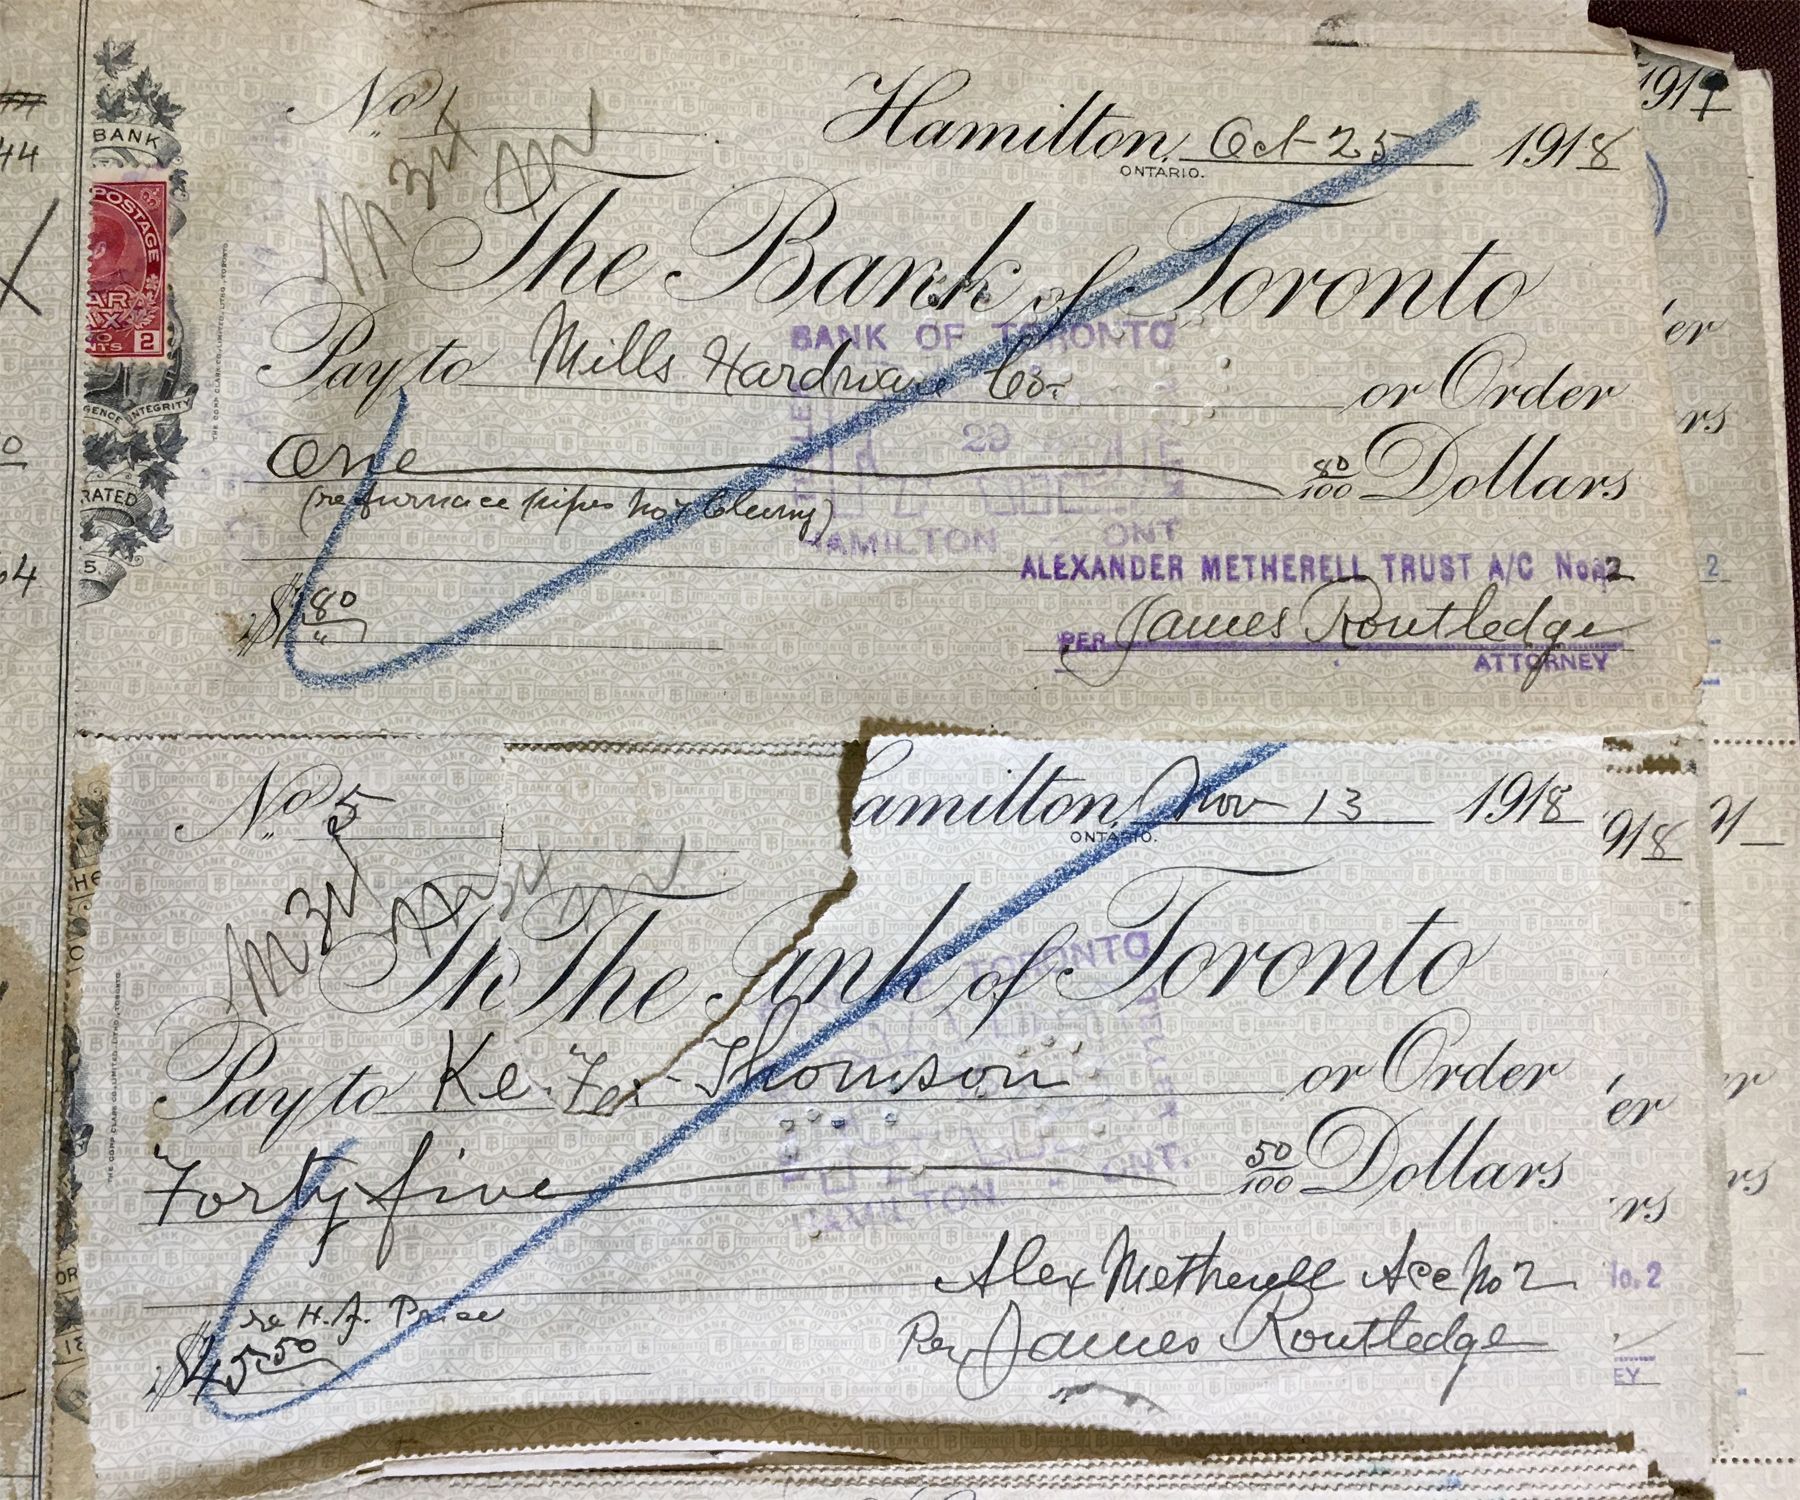 No. 1
Hamilton, Oct 25 1918
ONTARIO.
BANK
The Bank of Toronto
POSTAGE
WAR TAX
2
BANK OF TORONTO
Pay to Mills Hardware Co. or Order
INTEGRITY
29
One 80/100 Dollars
(re furnace pipes No 7
HAMILTON ONT
ALEXANDER METHERELL TRUST A/C No. 2
$1 80
PER James Routledge
ATTORNEY
No. 5
amilton, Nov 13 1918
ONTARIO.
Th The ank of Toronto
TORONTO
Pay to Ke Thomson or Order
Forty five 50/100 Dollars
HAMILTON ONT.
Alex Metherell Acc No 2
re H. J. Price
Per James Routledge
$45.50